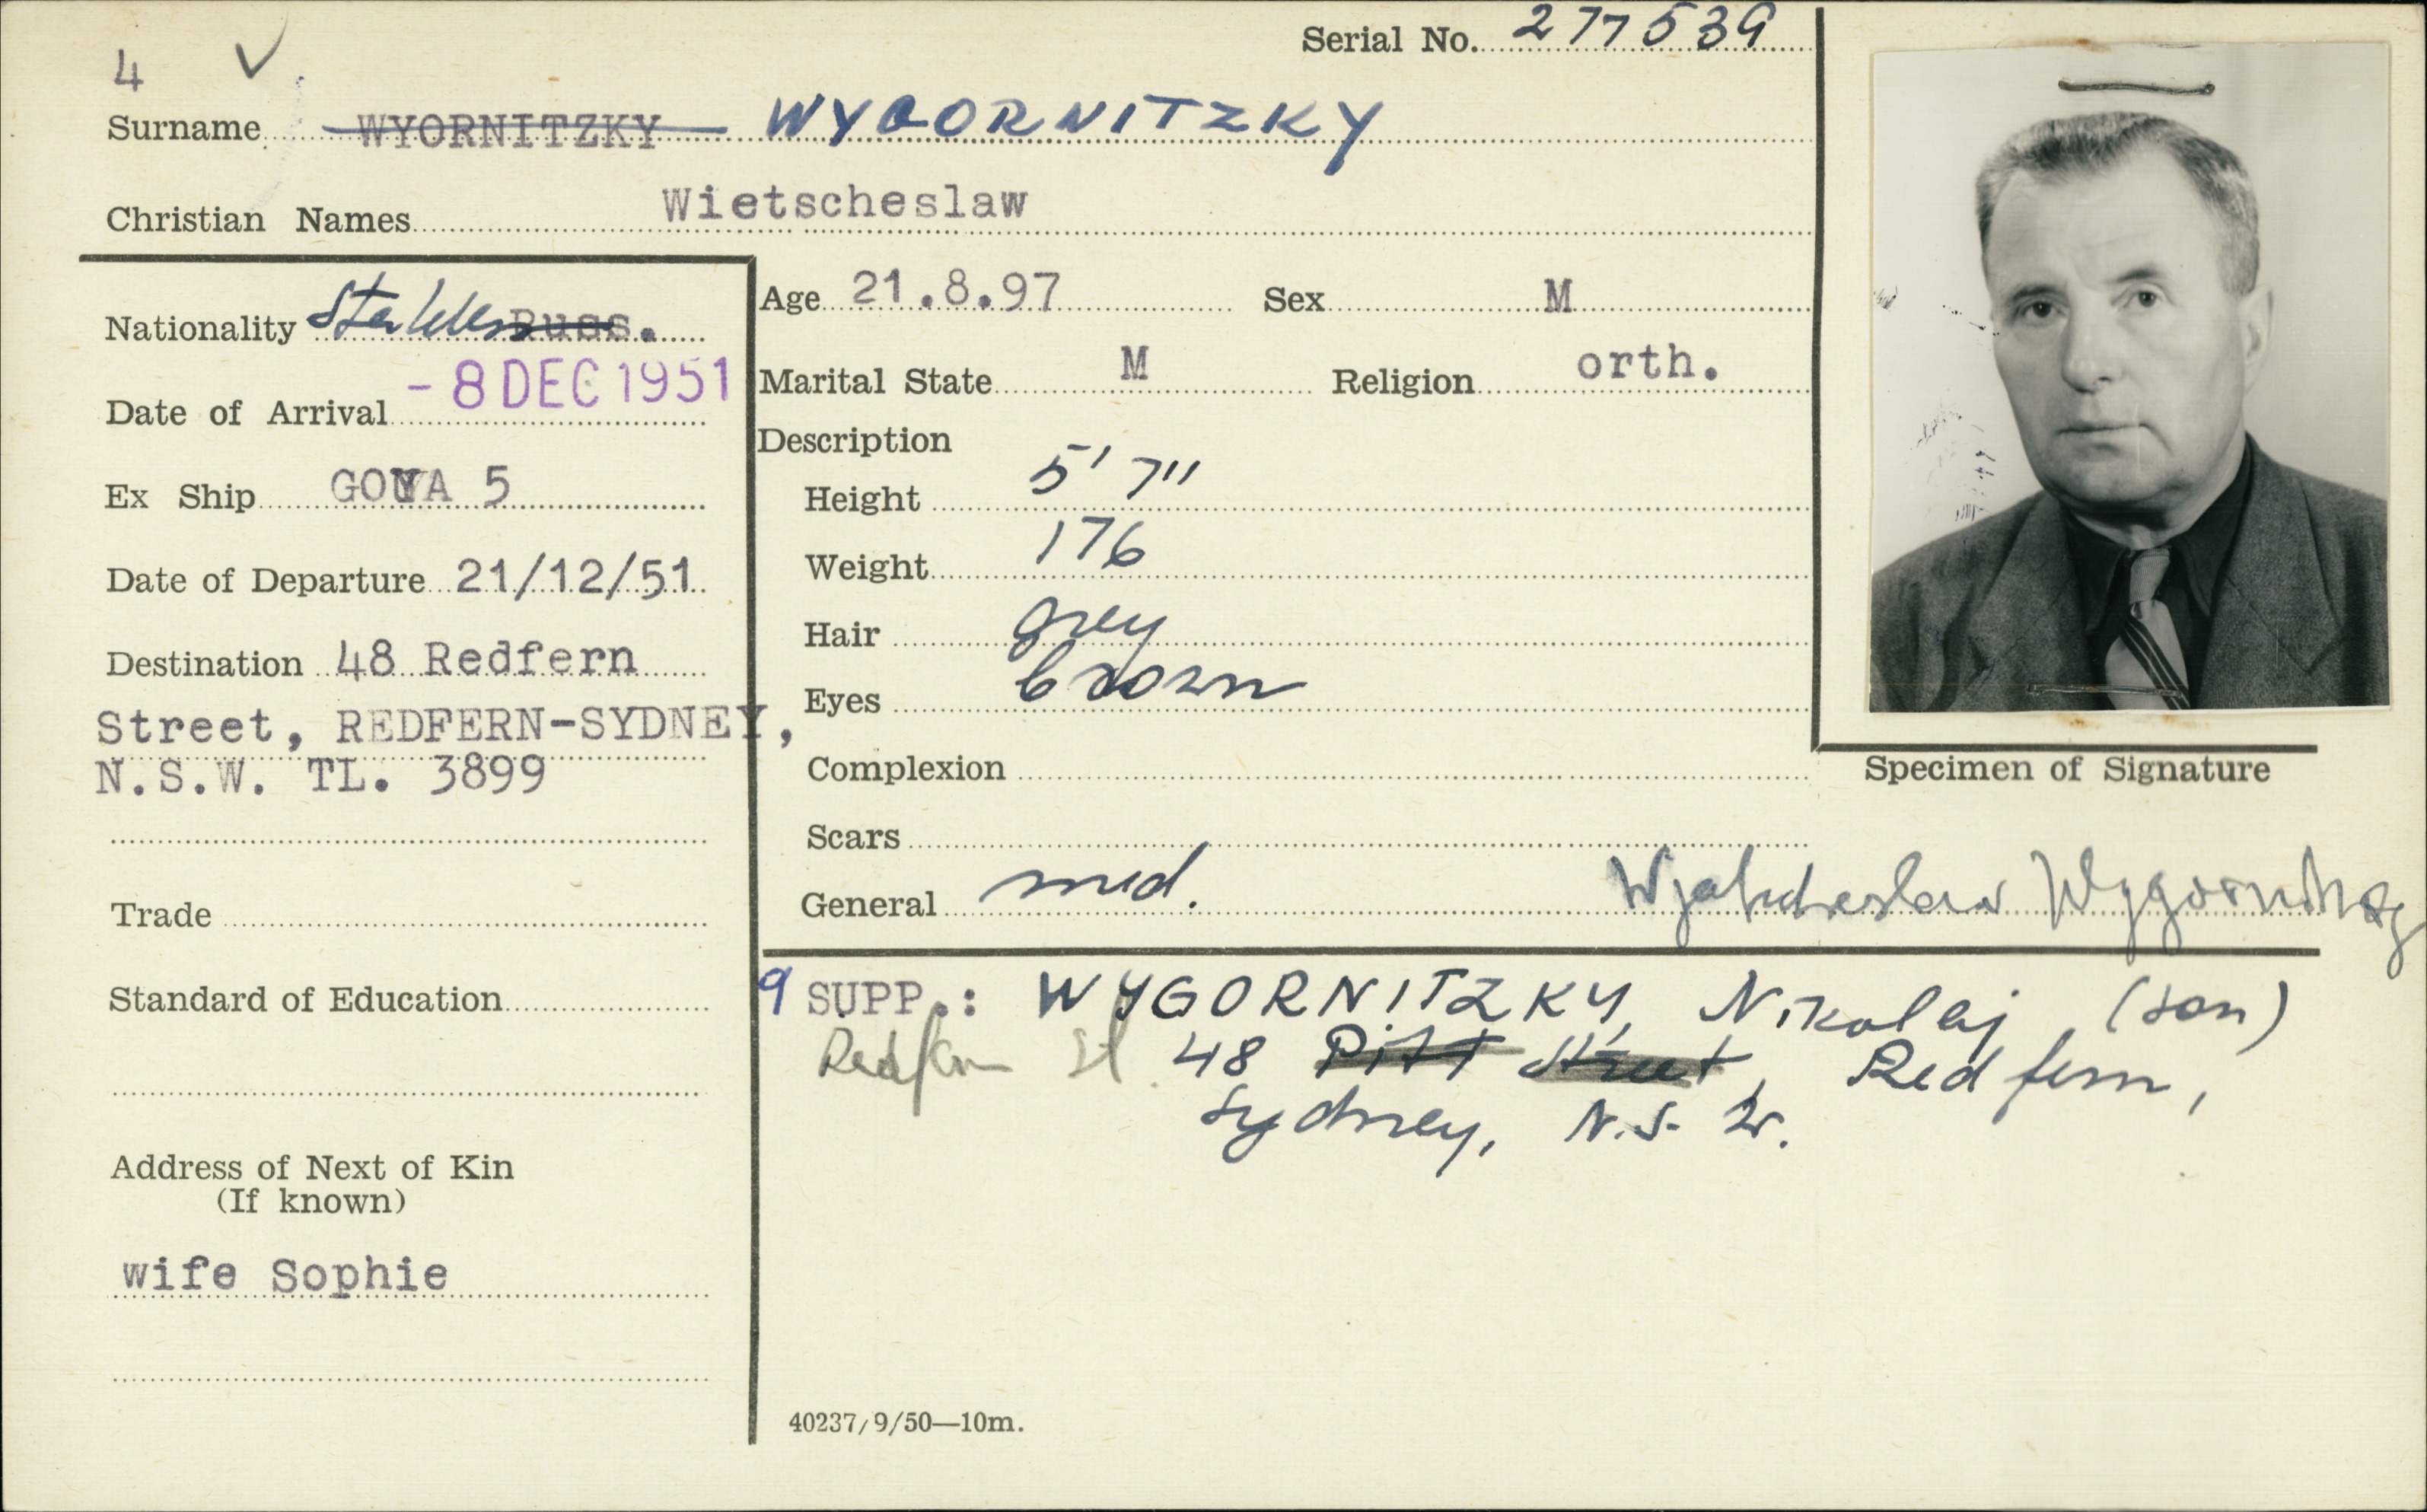 Serial No. 277539
4
Surname WYORNITZKY WYGORNITZKY
Christian Names Wietscheslaw
Nationality Stateless Russ.
Date of Arrival - 8 DEC 1951
Ex Ship GOYA 5
Date of Departure 21/12/51
Destination 48 Redfern
Street, REDFERN-SYDNEY,
N.S.W. TL. 3899
Trade
Standard of Education
Address of Next of Kin
(If known)
wife Sophie
Age 21.8.97 Sex M
Marital State M Religion orth.
Description
Height 5' 7"
Weight 176
Hair grey
Eyes brown
Complexion
Scars
General med.
Specimen of Signature
Wjatscheslaw Wygornitzky
9 SUPP.: WYGORNITZKY, Nikolaj (son)
Redfern St. 48 Pitt Street, Redfern,
Sydney, N.S.W.
40237/9/50—10m.